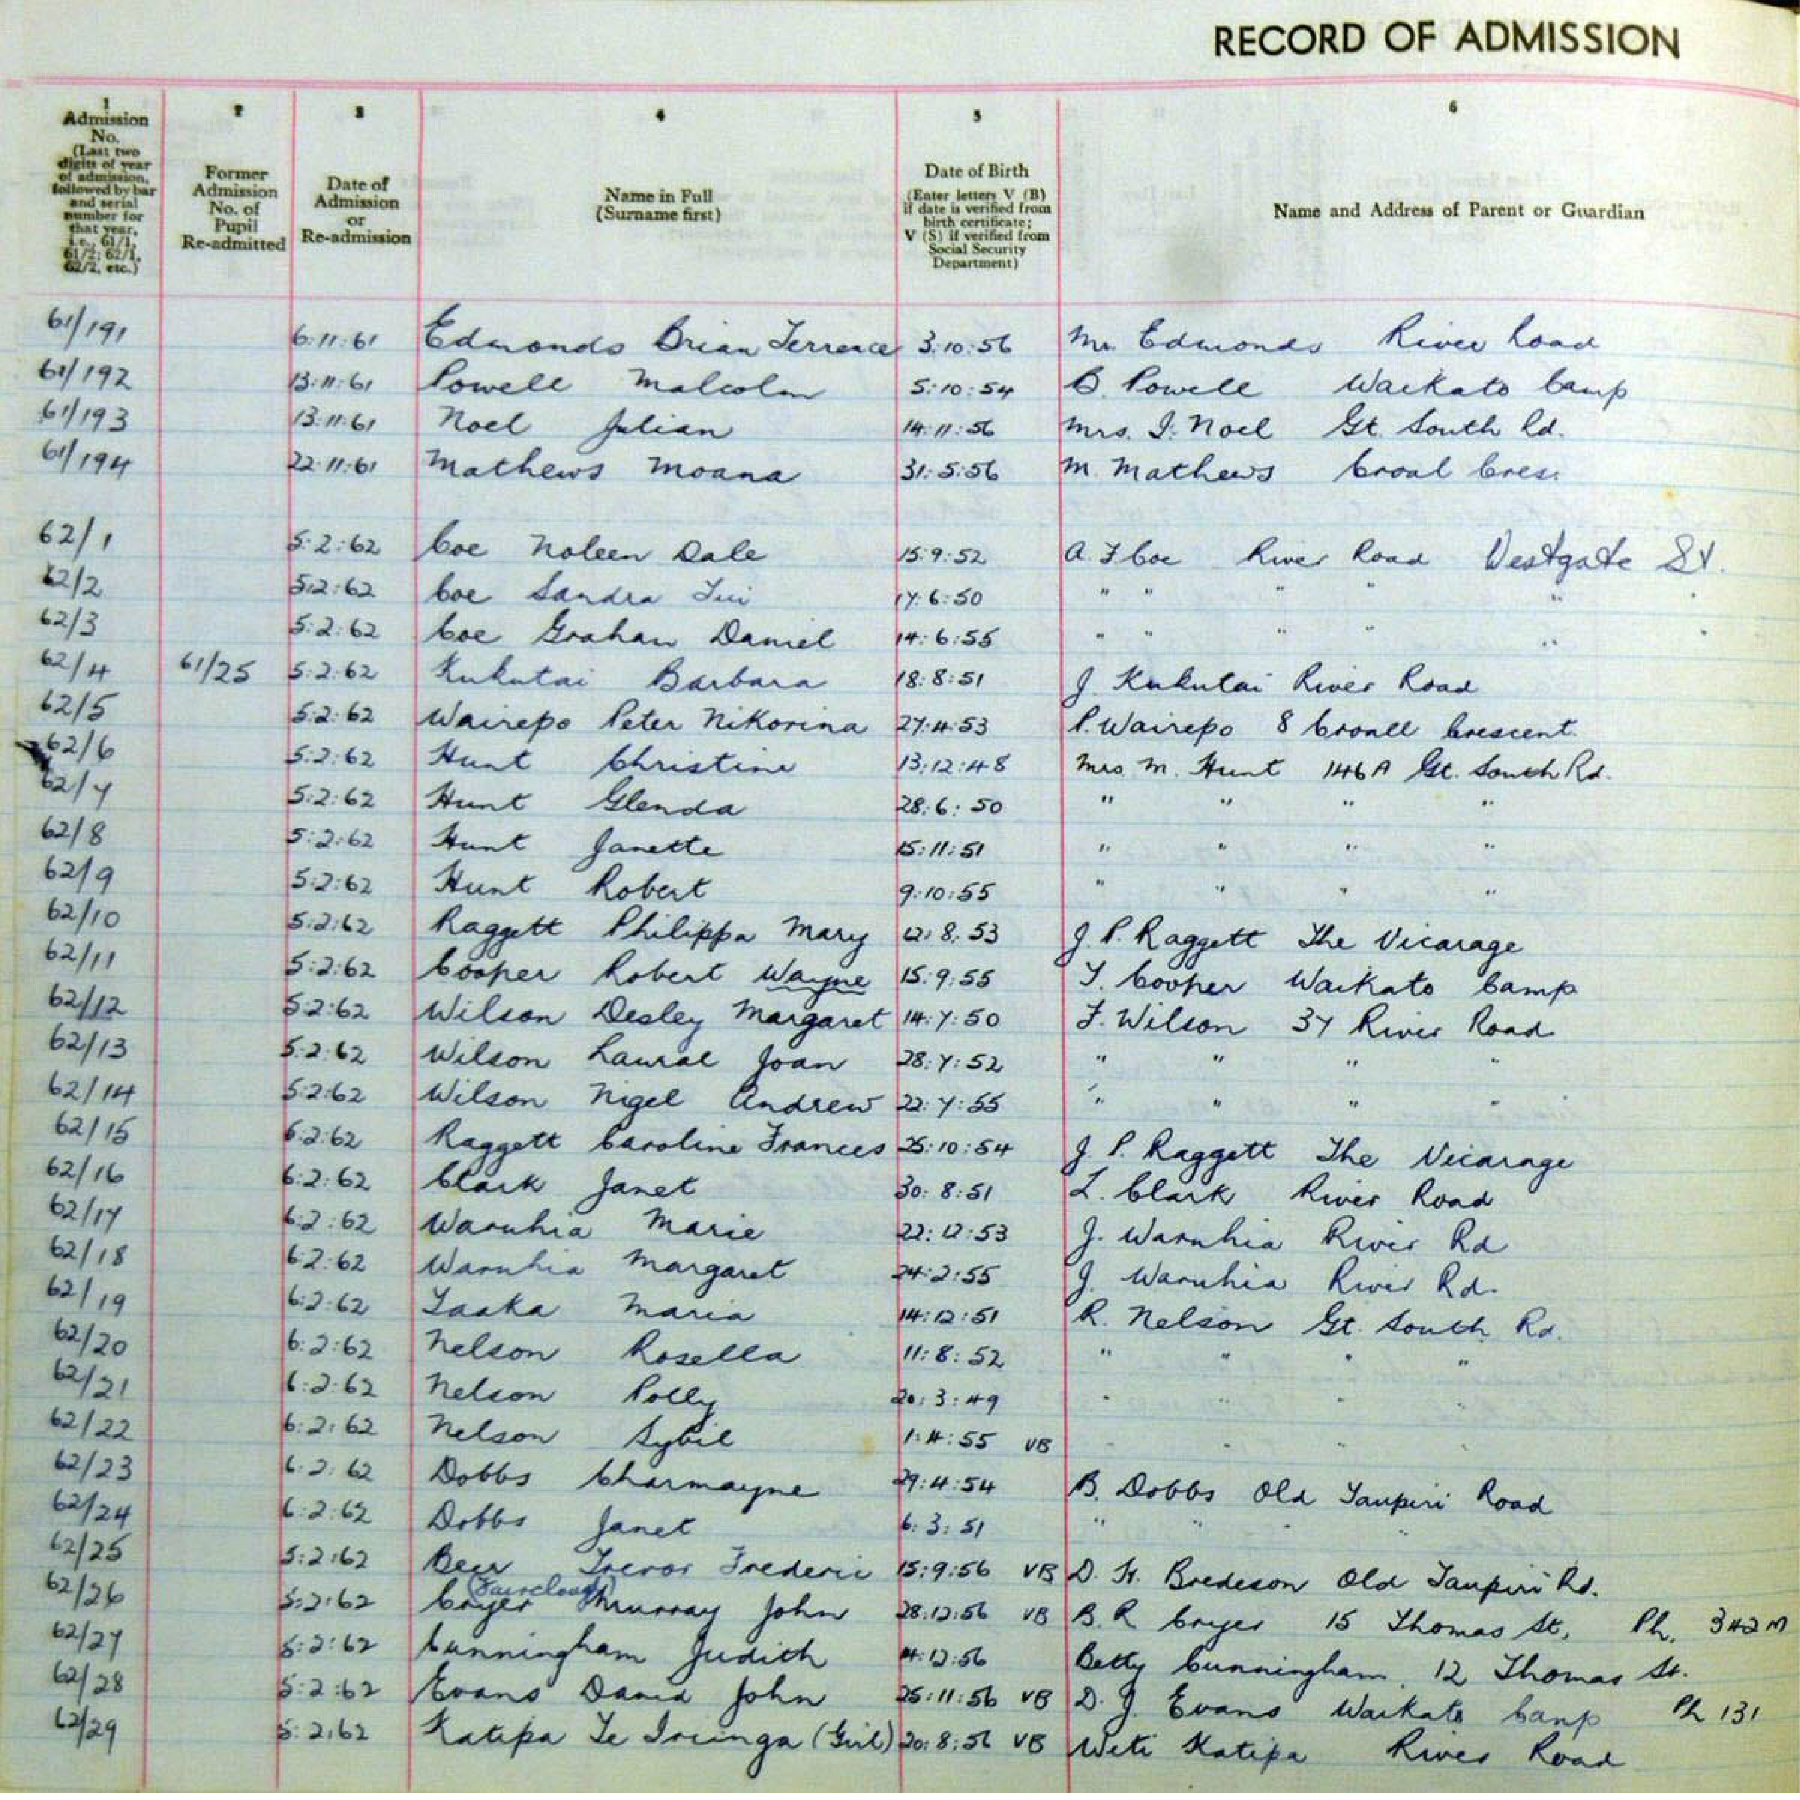 RECORD OF ADMISSION
1 2 3 4 5 6
Admission No. (Last two digits of year of admission, followed by bar and serial number for that year, i.e., 61/1, 61/2; 62/1, 62/2, etc.)
Former Admission No. of Pupil Re-admitted
Date of Admission or Re-admission
Name in Full (Surname first)
Date of Birth (Enter letters V (B) if date is verified from birth certificate; V (S) if verified from Social Security Department)
Name and Address of Parent or Guardian
61/191 6:11:61 Edmonds Brian Terrence 3:10:56 Mr. Edmonds River Road
61/192 13:11:61 Powell Malcolm 5:10:54 B. Powell Waikato Camp
61/193 13:11:61 Noel Julian 14:11:56 Mrs. I. Noel Gt. South Rd.
61/194 22:11:61 Mathews Moana 31:5:56 M. Mathews Croal Cres.
62/1 5:2:62 Coe Noleen Dale 15:9:52 A. F Coe River Road Westgate St.
62/2 5:2:62 Coe Sandra Tui 17:6:50 " " " " "
62/3 5:2:62 Coe Graham Daniel 14:6:55 " " " " "
62/4 61/25 5:2:62 Kukutai Barbara 18:8:51 J. Kukutai River Road
62/5 5:2:62 Wairepo Peter Nikorina 27:4:53 P. Wairepo 8 Croall Crescent.
62/6 5:2:62 Hunt Christine 13:12:48 Mrs M. Hunt 146A Gt. South Rd.
62/7 5:2:62 Hunt Glenda 28:6:50 " " " "
62/8 5:2:62 Hunt Janette 15:11:51 " " " "
62/9 5:2:62 Hunt Robert 9:10:55 " " " "
62/10 5:2:62 Raggett Philippa Mary 12:8:53 J. P. Raggett The Vicarage
62/11 5:2:62 Cooper Robert Wayne 15:9:55 T. Cooper Waikato Camp
62/12 5:2:62 Wilson Desley Margaret 14:7:50 F. Wilson 37 River Road
62/13 5:2:62 Wilson Laural Joan 28:7:52 " " " "
62/14 5:2:62 Wilson Nigel Andrew 22:7:55 " " " "
62/15 6:2:62 Raggett Caroline Frances 25:10:54 J. P. Raggett The Vicarage
62/16 6:2:62 Clark Janet 30:8:51 L. Clark River Road
62/17 6:2:62 Waruhia Marie 22:12:53 J. Waruhia River Rd
62/18 6:2:62 Waruhia Margaret 24:2:55 J. Waruhia River Rd.
62/19 6:2:62 Taaka Maria 14:12:51 R. Nelson Gt. South Rd.
62/20 6:2:62 Nelson Rosella 11:8:52 " " " "
62/21 6:2:62 Nelson Polly 20:3:49 " " " "
62/22 6:2:62 Nelson Sybil 1:4:55 VB " " " "
62/23 6:2:62 Dobbs Charmayne 29:4:54 B. Dobbs Old Taupiri Road
62/24 6:2:62 Dobbs Janet 6:3:51 " " " "
62/25 5:2:62 Beer Trevor Frederic 15:9:56 VB D. H. Bredeson Old Taupiri Rd.
(Fairclough)
62/26 5:2:62 Cryer Murray John 28:12:56 VB B. R Cryer 15 Thomas St, Ph. 342M
62/27 5:2:62 Cunningham Judith 4:12:56 Betty Cunningham 12 Thomas St.
62/28 5:2:62 Evans David John 25:11:56 VB D. J. Evans Waikato Camp Ph 131
62/29 5:2:62 Katipa Te Iringa (Girl) 20:8:56 VB Weti Katipa River Road